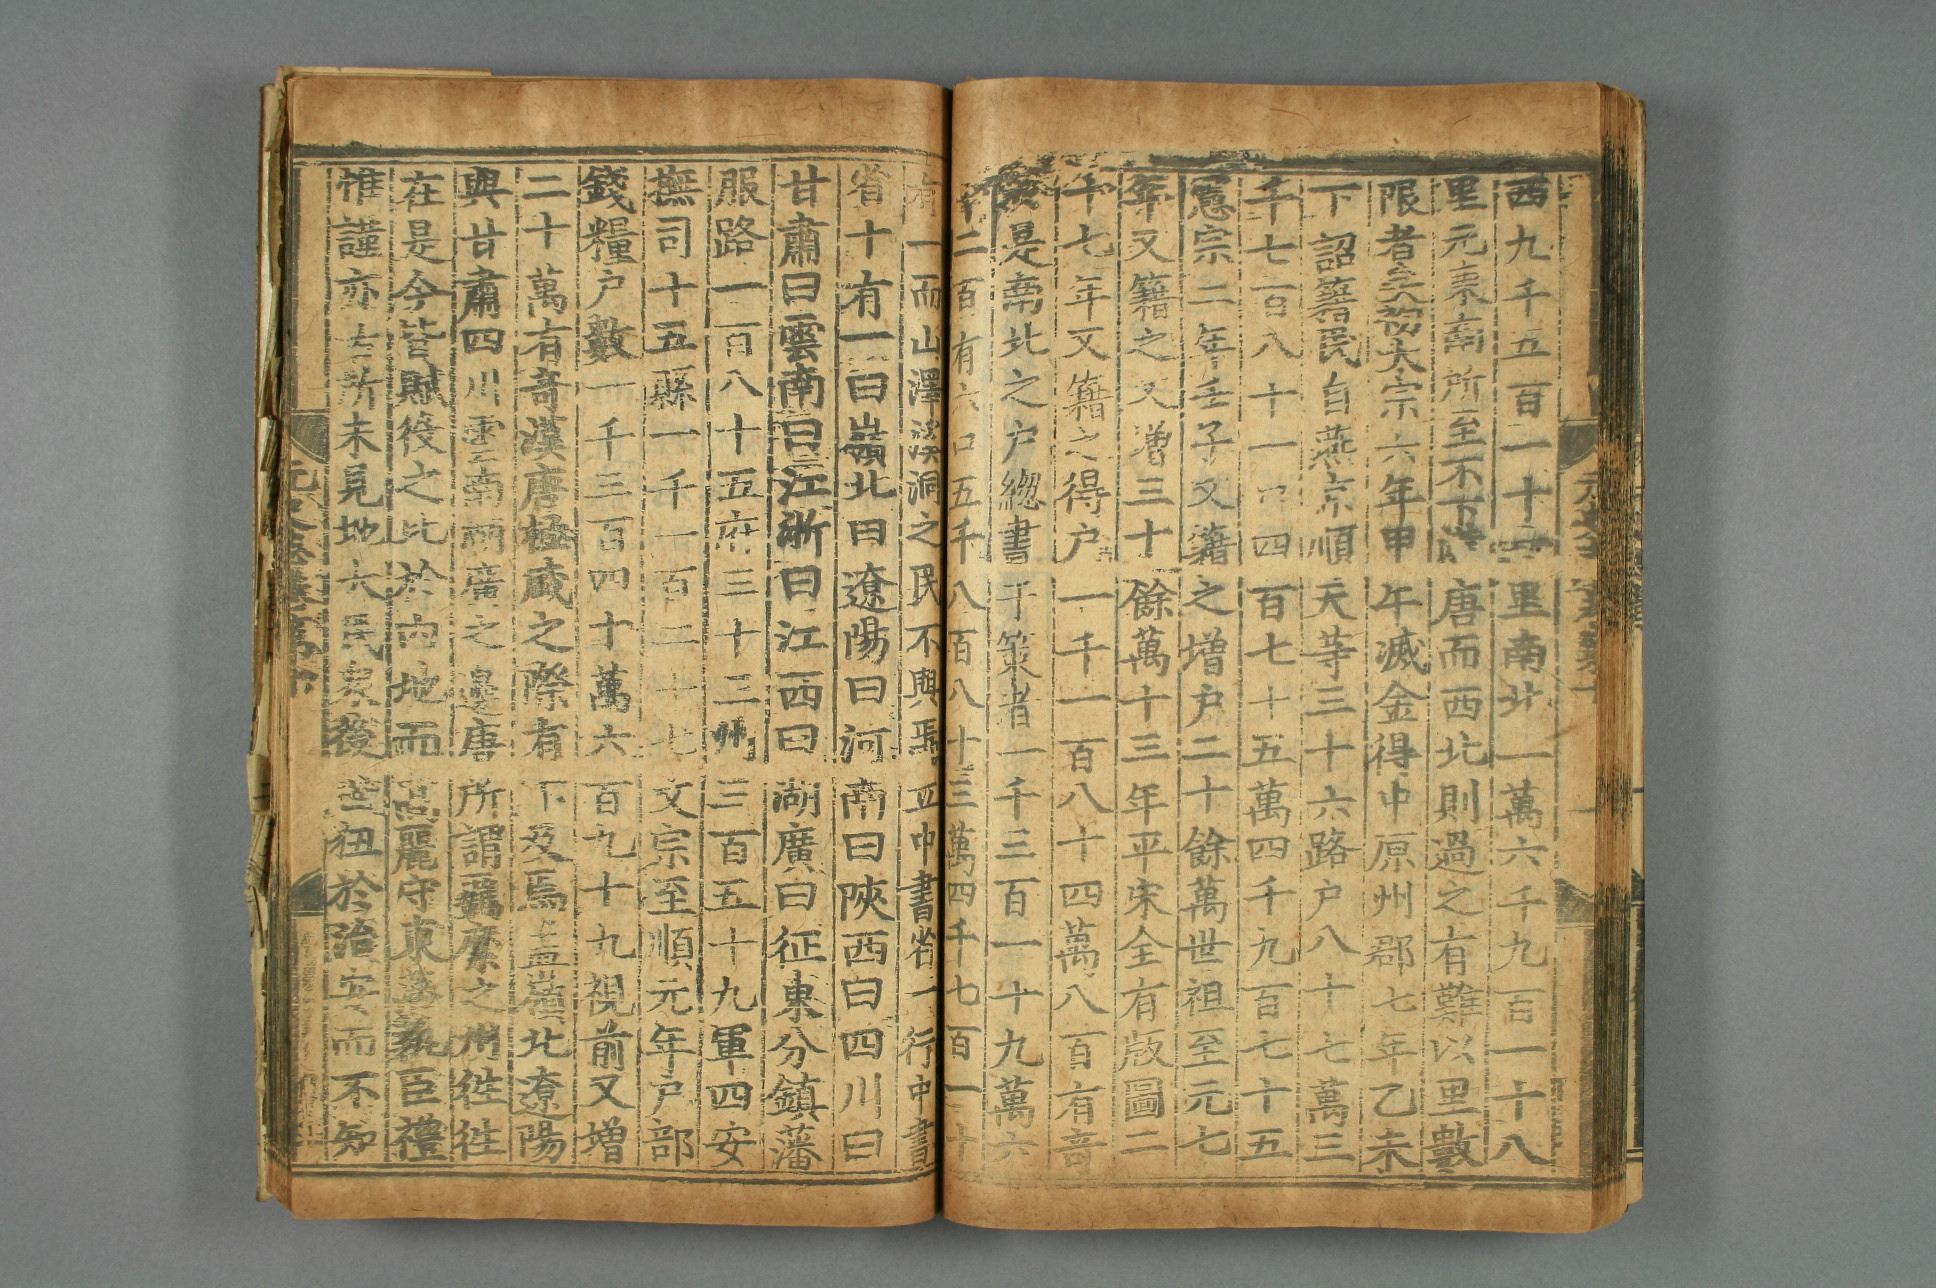 西九千五百一十一里南北一萬六千九百一十八
里元東南所至不下漢唐而西北則過之有難以里數
限者矣初太宗六年甲午滅金得中原州郡七年乙未
下詔籍民自燕京順天等三十六路户八十七萬三
千七百八十一口四百七十五萬四千九百七十五
憲宗二年壬子又籍之增户二十餘萬世祖至元七
年又籍之又增三十餘萬十三年平宋全有版圖二
十七年又籍之得户一千一百八十四萬八百有奇
於是南北之户總書于策者一千三百一十九萬六
千二百有六口五千八百八十三萬四千七百一十
有一而山澤溪洞之民不與焉立中書省一行中書
省十有一曰嶺北曰遼陽曰河南曰陝西曰四川曰
甘肅曰雲南曰江浙曰江西曰湖廣曰征東分鎮藩
服路一百八十五府三十三州三百五十九軍四安
撫司十五縣一千一百二十七文宗至順元年户部
錢糧户數一千三百四十萬六百九十九視前又增
二十萬有奇漢唐極盛之際有不及焉蓋嶺北遼陽
與甘肅四川雲南湖廣之邊唐所謂羈縻之州徃徃
在是今皆賦役之比於内地而髙麗守東藩執臣禮
惟謹亦古所未見地大民衆後世狃於治安而不知